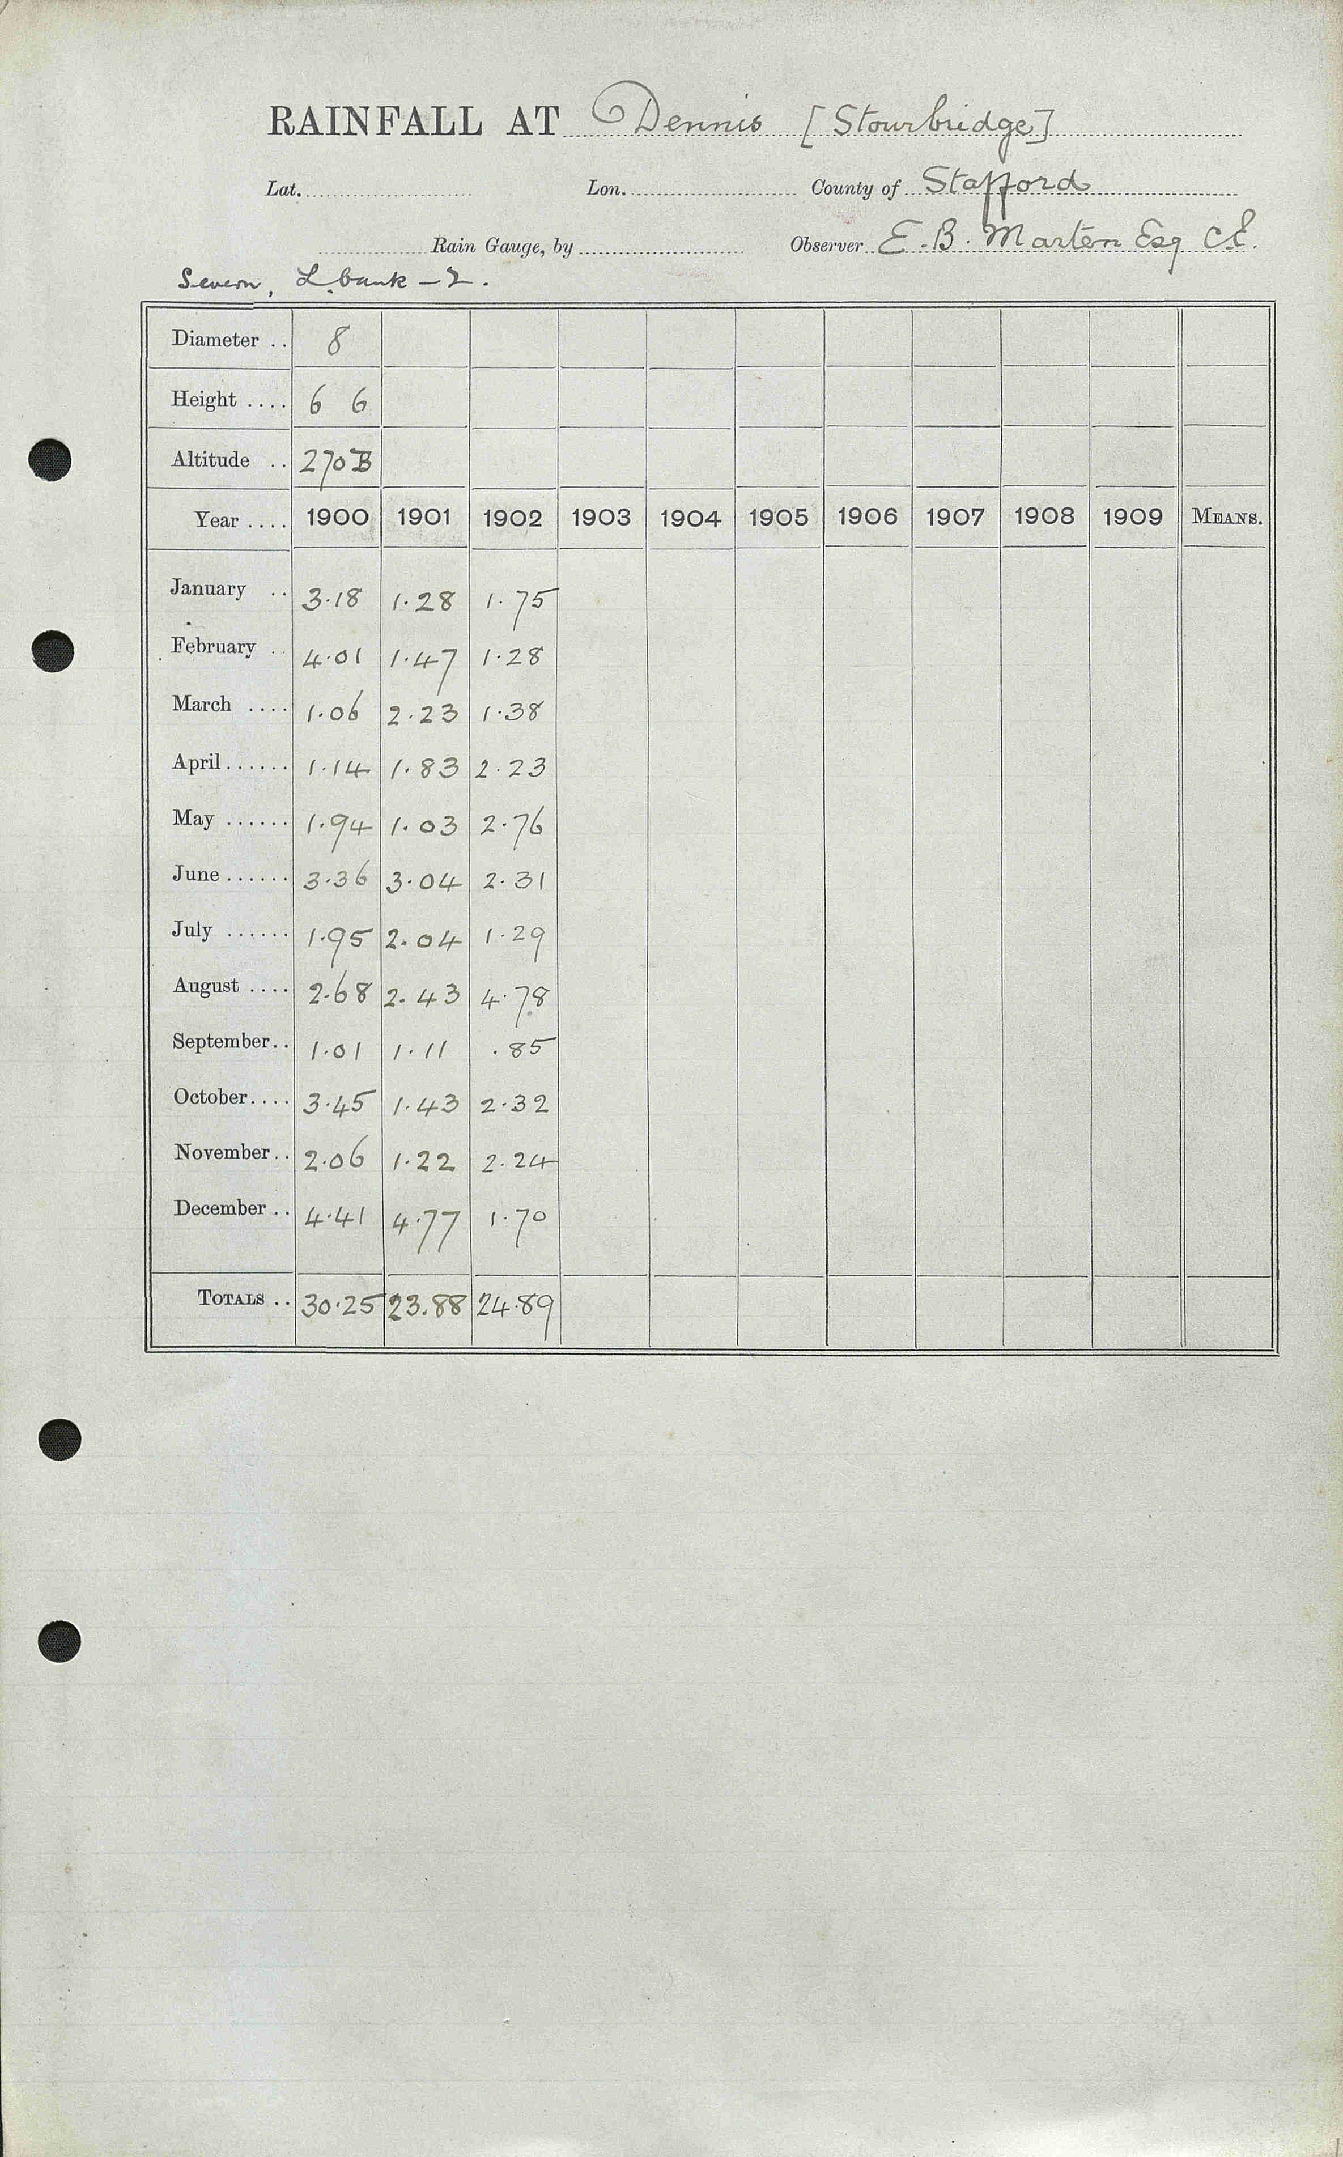 RAINFALL AT Dennis [Stourbridge]
Lat. Lon. County of Stafford
Rain Gauge, by Observer E. B. Marten Esq C.E.
Severn, L. bank - 2.
Diameter .. 8
Height .... 6 6
Altitude .. 270 B
Year .... 1900 1901 1902 1903 1904 1905 1906 1907 1908 1909 MEANS.
January .. 3.18 1.28 1.75
February .. 4.01 1.47 1.28
March .... 1.06 2.23 1.38
April...... 1.14 1.83 2.23
May ...... 1.94 1.03 2.76
June...... 3.36 3.04 2.31
July ...... 1.95 2.04 1.29
August .... 2.68 2.43 4.78
September.. 1.01 1.11 .85
October.... 3.45 1.43 2.32
November.. 2.06 1.22 2.24
December .. 4.41 4.77 1.70
TOTALS .. 30.25 23.88 24.89